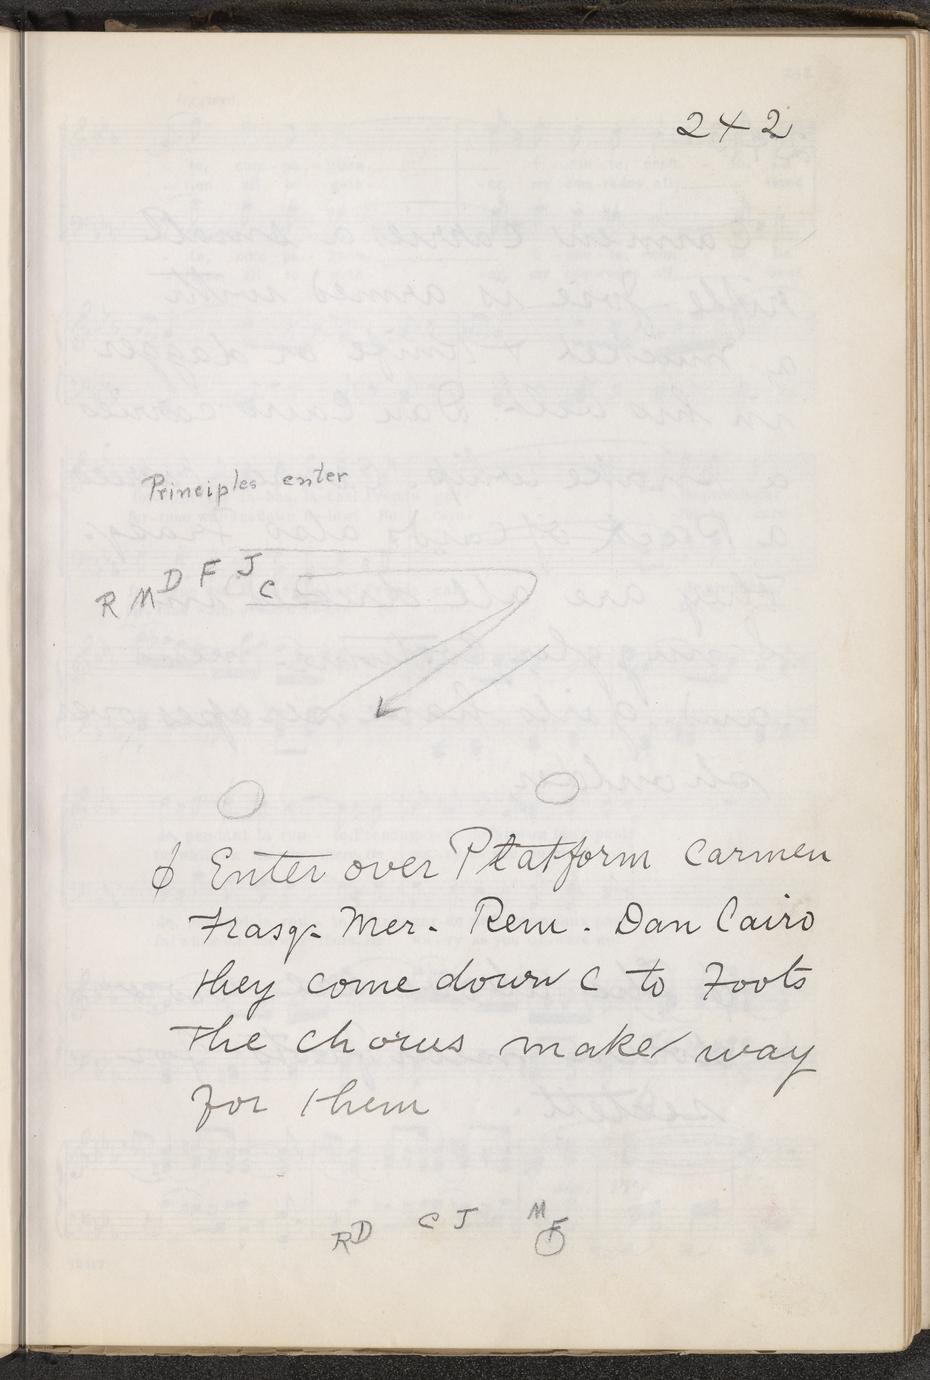 242
Principles enter
R M D F J
C
₵ Enter over Platform Carmen
Frasq- Mer- Rem. Dan Cairo
they come down C to Foots
The chorus make way
for them
RD C J M
F